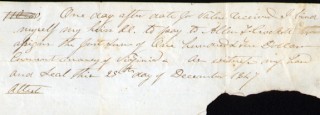 One day after date for value received I bind
myself my heirs &c. to pay to Allen
the just sum of One Hundred Dollars
Current money of Virginia As witness my hand
and Seal this 25th day of December 1847
Attest